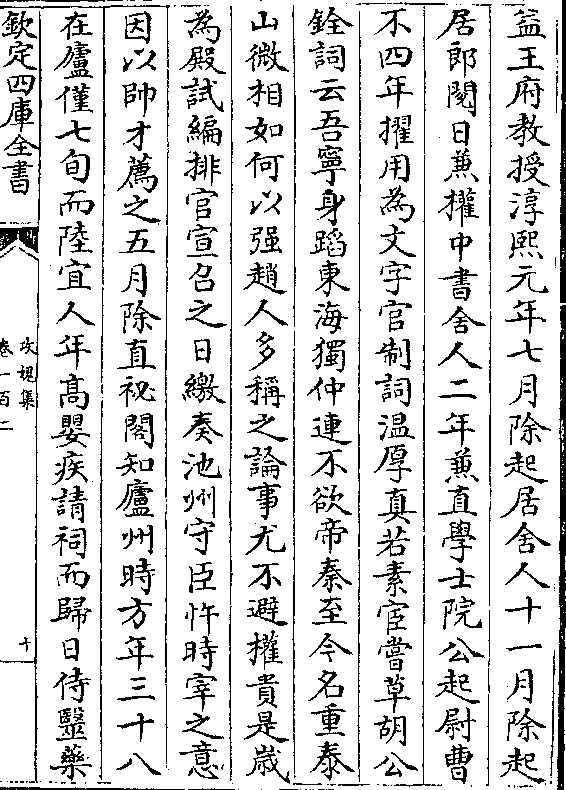 益王府教授淳熙元年七月除起居舍人十一月除起
居郎閱日兼權中書舍人二年兼直學士院公起尉曹
不四年擢用為文字官制詞温厚真若素宦嘗草胡公
銓詞云吾寧身蹈東海獨仲連不欲帝秦至今名重泰
山微相如何以强趙人多稱之論事尤不避權貴是嵗
為殿試編排官宣召之日繳奏池州守臣忤時宰之意
因以帥才薦之五月除直祕閣知廬州時方年三十八
在廬僅七旬而陸宜人年髙嬰疾請祠而歸日侍毉藥
欽定四庫全書
攻媿集
卷一百二
十